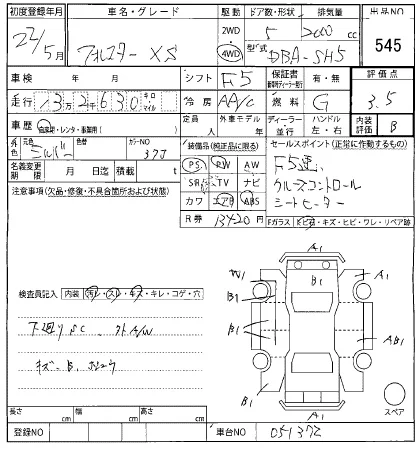 初度登録年月 車名・グレード 駆動 ドア数・形状 排気量 出品NO
22/5月 フォレスター XS 2WD 4WD 5 2000 cc 545
型式 DBA-SH5
車検 年 月 シフト F5 保証書 有・無 評価点
走行 13万2千630 キロ マイル 冷房 AA/C 燃料 G 3.5
車歴 自家用・レンタ・事業用( ) 定員 人 外車モデル 年 ディーラー 並行 ハンドル 左・右 内装評価 B
外色 元色 シルバー 色替 カラーNO 37J 装備品(純正品に限る) セールスポイント(正常に作動するもの)
名義変更期限 月 日迄 積載量 t
PS PW AW
SR TV ナビ
カワ エアB ABS
F5速
クルーズコントロール
シートヒーター
注意事項(欠品・修復・不具合箇所および状態)
R券 13420 円 Fガラス トビ石・キズ・ヒビ・ワレ・リペア跡
A1
W1 B1 A1
B1
B1 AB1
B1 B1
A1 スペア
検査員記入 内装 汚レ・スレ・キズ・キレ・コゲ・穴
下廻りSC 外A/W
キズ B
長さ cm 幅 cm 高さ cm
登録NO 車台NO 051372